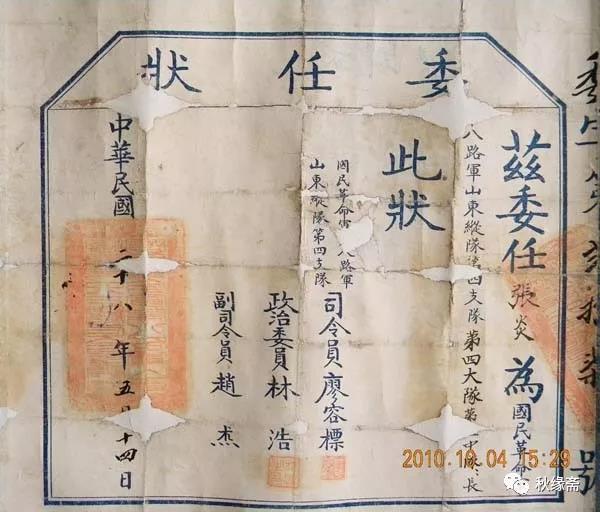 委任状
茲委任張炎為國民革命
八路軍山東縱隊第四支隊第四大隊第 中隊長
此狀
國民革命 八路軍
山東縱隊第四支隊
司令員廖容標
政治委員林浩
副司令員趙杰
中華民國二十八年五月 十四日
號
2010.10.04 15:29
秋缘斋